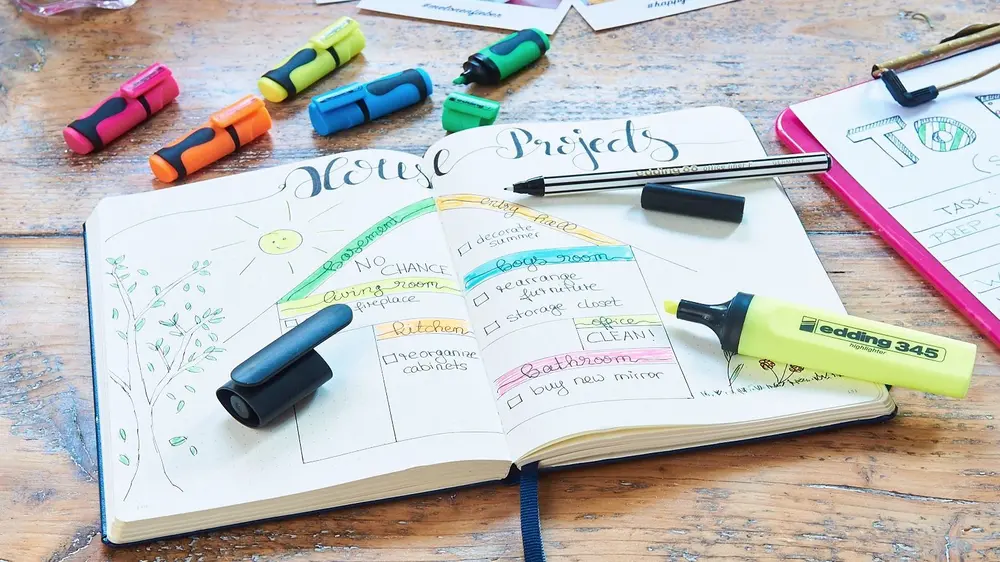 #happy
House Projects
basement
entry hall
decorate
summer
NO CHANCE
boys room
rearrange
furniture
storage closet
living room
fireplace
kitchen
reorganize
cabinets
office
CLEAN!
bathroom
buy new mirror
edding 345
highlighter
TO
TASK
PREP